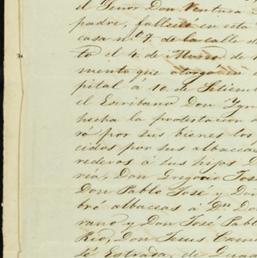 el Señor Don Ventura
padre, falleció en esta
casa nº 7. de la calle de
to el 4. de Marzo de
mento que otorgó en
pital a 10. de Setiem
el Escribano Don Ygn
hecha la protestacion
ró por sus bienes los
cidos por sus albaceas
rederos a sus hijos D
ria, Don Gregorio José
Don Pablo José y Don
bró albaceas á Dn. Do
rano y Don José Pabl
Rio, Don Jesus Cam
sé Estrada, de Guad